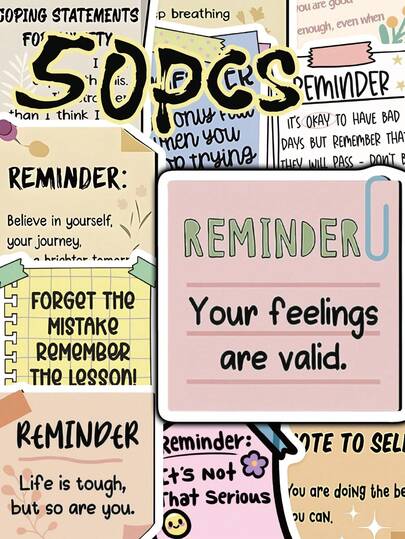 COPING STATEMENTS
FOR
than I think I
p breathing
you are good
enough, even when
50pcs
only
when you
trying
REMINDER
IT'S OKAY TO HAVE BAD
DAYS BUT REMEMBER THAT
THEY WILL PASS - DON'T
REMINDER:
Believe in yourself,
your journey,
a brighter
REMINDER
Your feelings
are valid.
FORGET THE
MISTAKE
REMEMBER
THE LESSON!
REMINDER
Life is tough,
but so are you.
Reminder:
It's Not
That Serious
NOTE TO SELF
You are doing the be
you can.